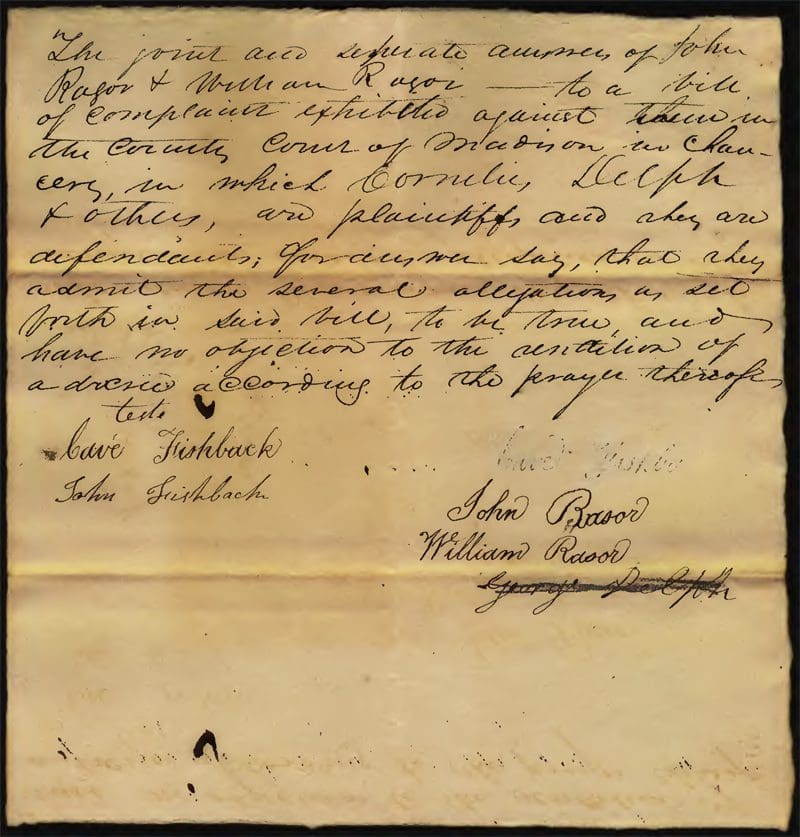 The joint and seperate answers of John
Rasor & William Rasor — to a bill
of complaint exhibited against them in
the County Court of Madison in Chan-
cery, in which Cornelius Delph
& others, are plaintiffs and they are
defendants; for answer say, that they
admit the several allegations as set
forth in said bill, to be true, and
have no objection to the rendition of
a decree according to the prayer thereof
teste
Cave Fishback
John Fishback
John Rasor
William Rasor
George Delph